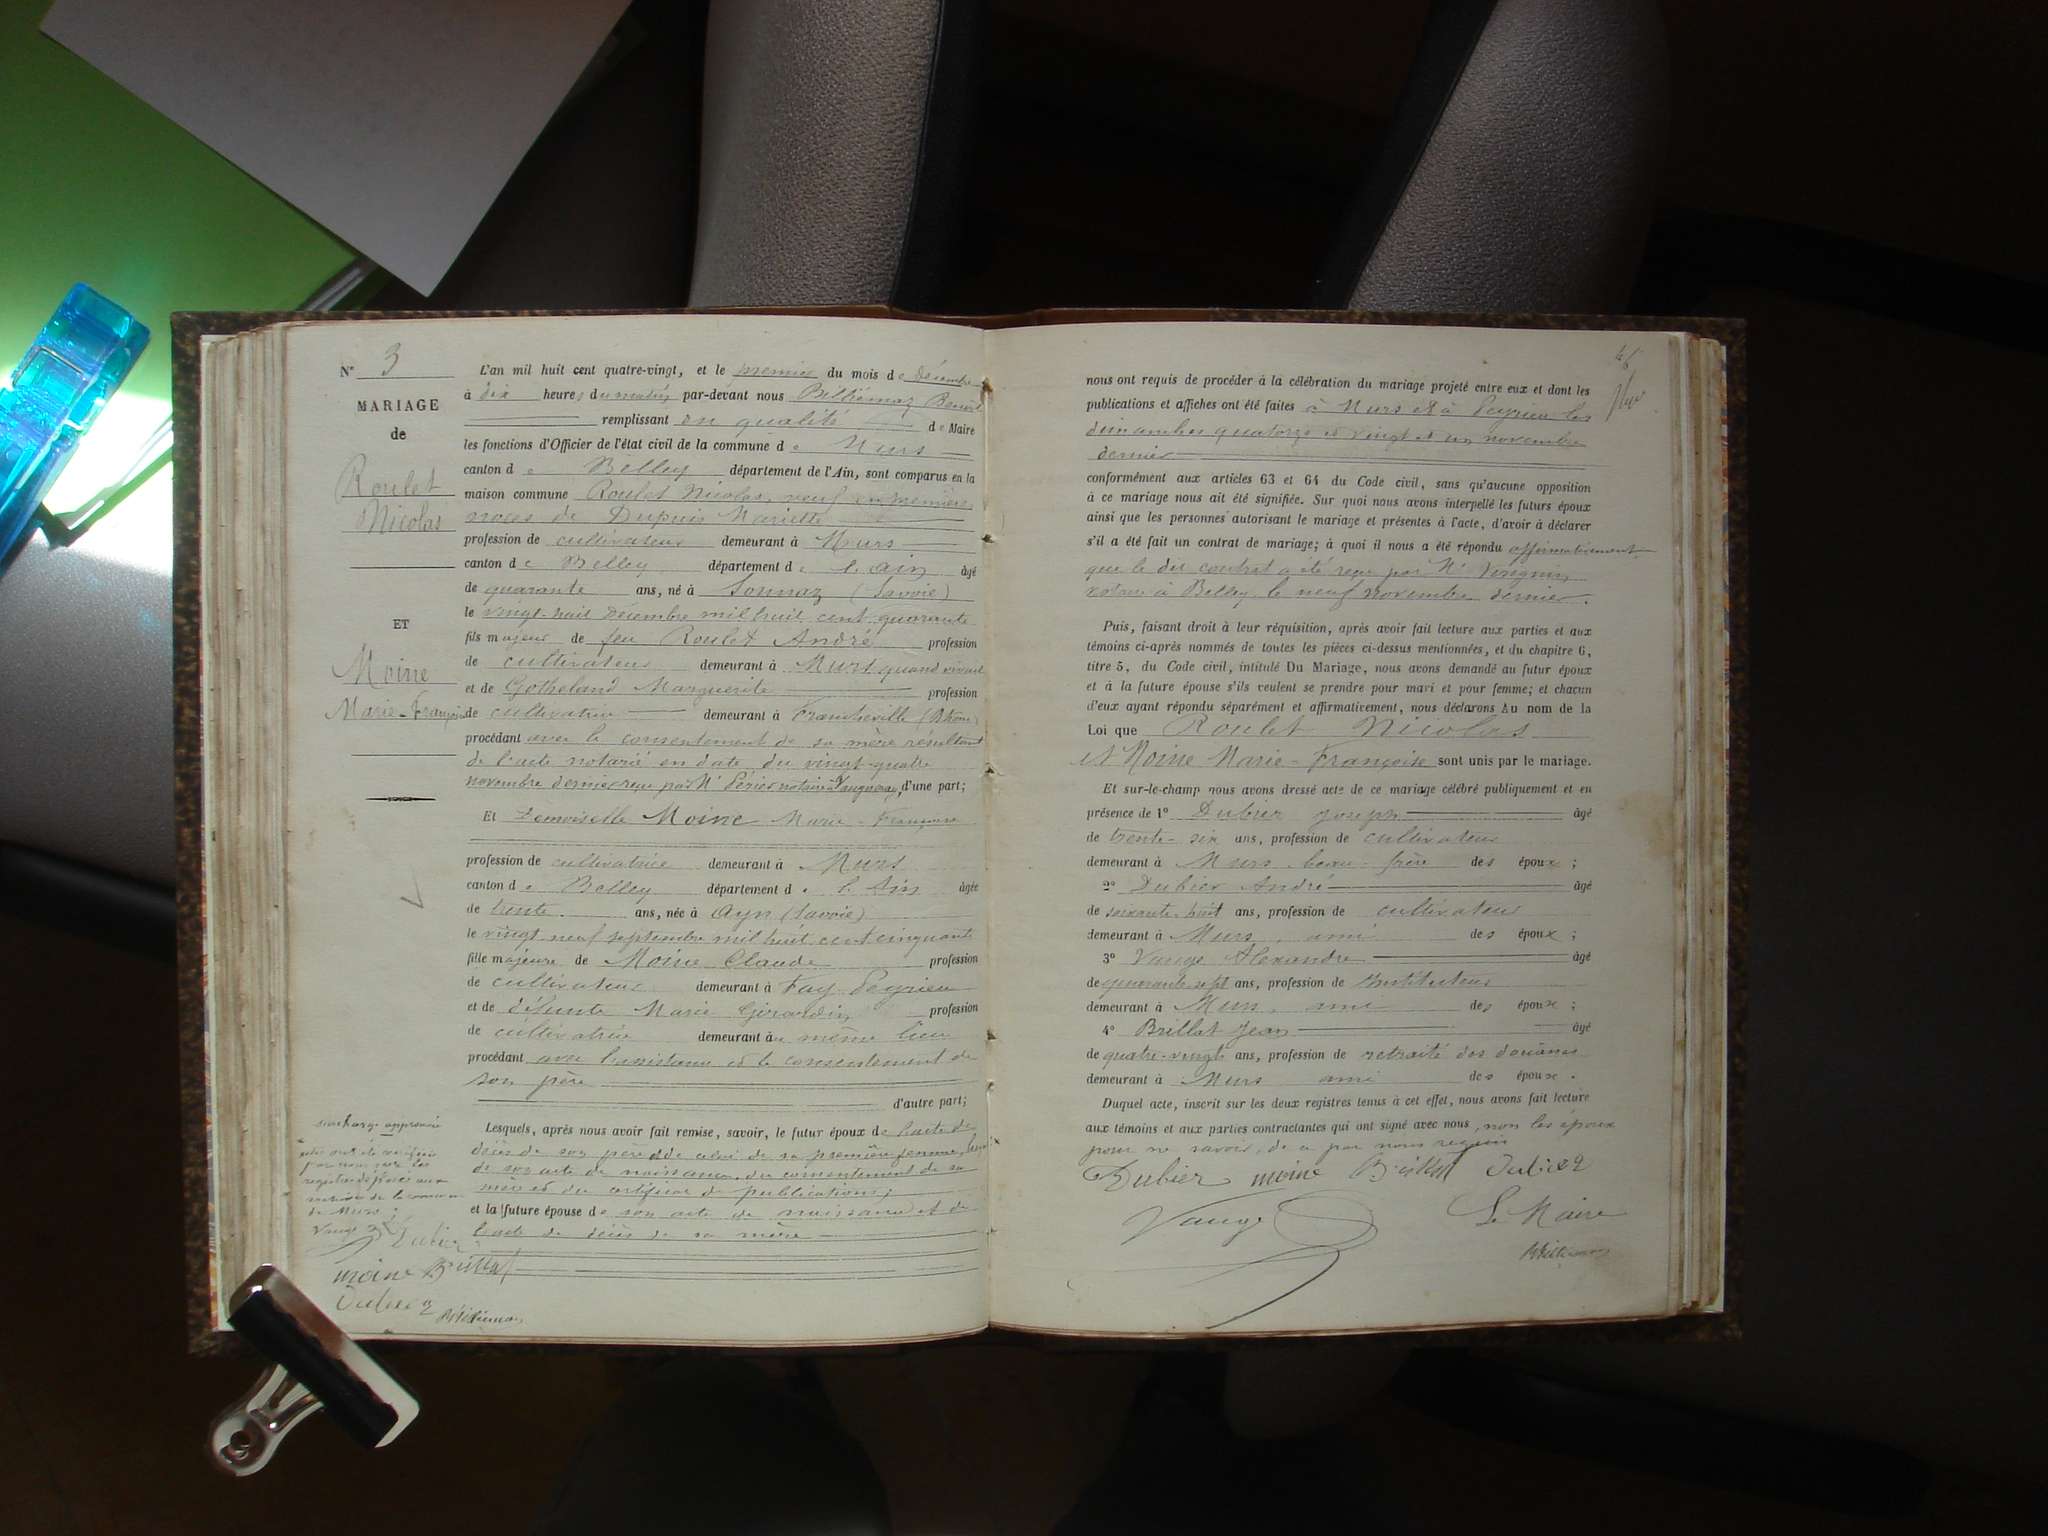 N° 3
MARIAGE
de
Roulet
Nicolas
ET
Moine
Marie-Françoise
L'an mil huit cent quatre-vingt, et le premier du mois de Décembre
à dix heures du matin par-devant nous Billiémaz Benoit
remplissant en qualité de Maire
les fonctions d'Officier de l'état civil de la commune de Murs
canton de Belley département de l'Ain, sont comparus en la
maison commune Roulet Nicolas, veuf en premières
noces de Dupuis Mariette
profession de cultivateur demeurant à Murs
canton de Belley département de l'ain âgé
de quarante ans, né à Sonnaz (Savoie)
le vingt-huit Décembre mil huit cent quarante
fils majeur de feu Roulet André profession
de cultivateur demeurant à Murs quand vivait
et de Gotheland Marguerite profession
de cultivatrice demeurant à Francheville (Rhône)
procédant avec le consentement de sa mère résultant
de l'acte notarié en date du vingt-quatre
novembre dernier reçu par Me Périer notaire à Vaugneray, d'une part;
Et Demoiselle Moine Marie-Françoise
profession de cultivatrice demeurant à Murs
canton de Belley département de l'Ain âgée
de trente ans, née à Ayn (Savoie)
le vingt neuf septembre mil huit cent cinquante
fille majeure de Moine Claude profession
de cultivateur demeurant à Fay Peyrieu
et de défunte Marie Girardin profession
de cultivatrice demeurant au même lieu
procédant avec l'assistance et le consentement de
son père
d'autre part;
Lesquels, après nous avoir fait remise, savoir, le futur époux de l'acte de
décès de son père et de celui de sa première femme,
de son acte de naissance, du consentement de sa
mère et du certificat de publications;
et la future épouse de son acte de naissance et de
l'acte de décès de sa mère
surcharge approuvée
par nous sur les
registres déposés aux
archives de la commune
de Murs
Vauge Dubier
moine Brillat
Dubier Billiémaz
46
nous ont requis de procéder à la célébration du mariage projeté entre eux et dont les
publications et affiches ont été faites à Murs et à Peyrieu les
dimanches quatorze et vingt et un novembre
dernier
conformément aux articles 63 et 64 du Code civil, sans qu'aucune opposition
à ce mariage nous ait été signifiée. Sur quoi nous avons interpellé les futurs époux
ainsi que les personnes autorisant le mariage et présentes à l'acte, d'avoir à déclarer
s'il a été fait un contrat de mariage; à quoi il nous a été répondu affirmativement
que le dit contrat a été reçu par Me
notaire à Belley le neuf novembre dernier.
Puis, faisant droit à leur réquisition, après avoir fait lecture aux parties et aux
témoins ci-après nommés de toutes les pièces ci-dessus mentionnées, et du chapitre 6,
titre 5, du Code civil, intitulé Du Mariage, nous avons demandé au futur époux
et à la future épouse s'ils veulent se prendre pour mari et pour femme; et chacun
d'eux ayant répondu séparément et affirmativement, nous déclarons Au nom de la
Loi que Roulet Nicolas
et Moine Marie-Françoise sont unis par le mariage.
Et sur-le-champ nous avons dressé acte de ce mariage célébré publiquement et en
présence de 1° Dubier Joseph âgé
de trente-six ans, profession de cultivateur
demeurant à Murs beau-frère des époux;
2° Dubier André âgé
de soixante-huit ans, profession de cultivateur
demeurant à Murs, ami des époux;
3° Vauge Alexandre âgé
de quarante sept ans, profession de Instituteur
demeurant à Murs, ami des époux;
4° Brillat Jean âgé
de quatre-vingts ans, profession de retraité des douanes
demeurant à Murs ami des époux.
Duquel acte, inscrit sur les deux registres tenus à cet effet, nous avons fait lecture
aux témoins et aux parties contractantes qui ont signé avec nous, non les époux
pour ne savoir, de ce par nous requis
Dubier moine Brillat Dubier
Vauge Le Maire
Billiémaz